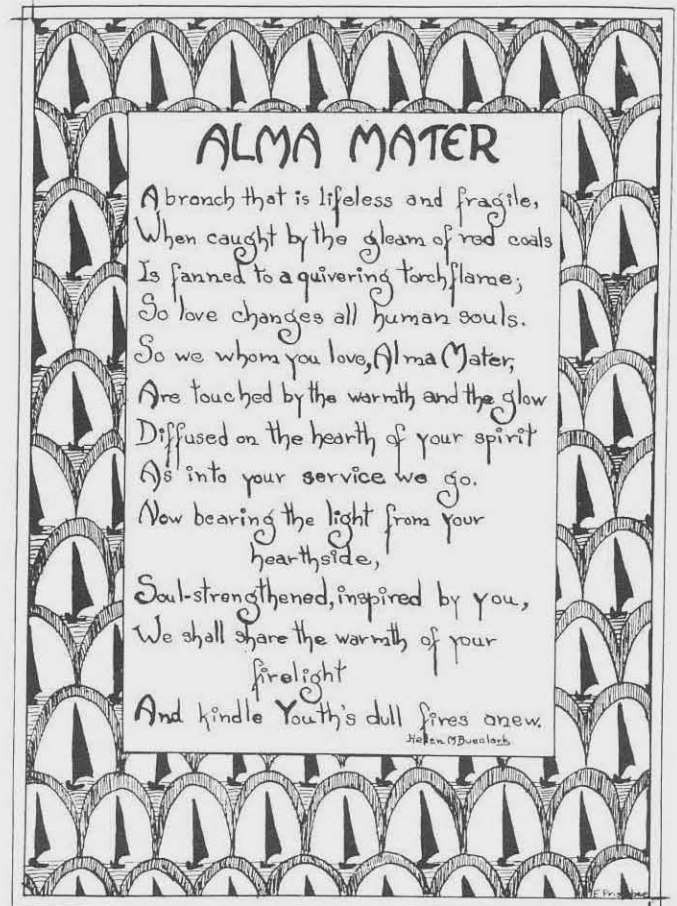 ALMA MATER
A branch that is lifeless and fragile,
When caught by the gleam of red coals
Is fanned to a quivering torchflame;
So love changes all human souls.
So we whom you love, Alma Mater,
Are touched by the warmth and the glow
Diffused on the hearth of your spirit
As into your service we go.
Now bearing the light from your
hearthside,
Soul-strengthened, inspired by you,
We shall share the warmth of your
firelight
And kindle Youth's dull fires anew.
Helen M